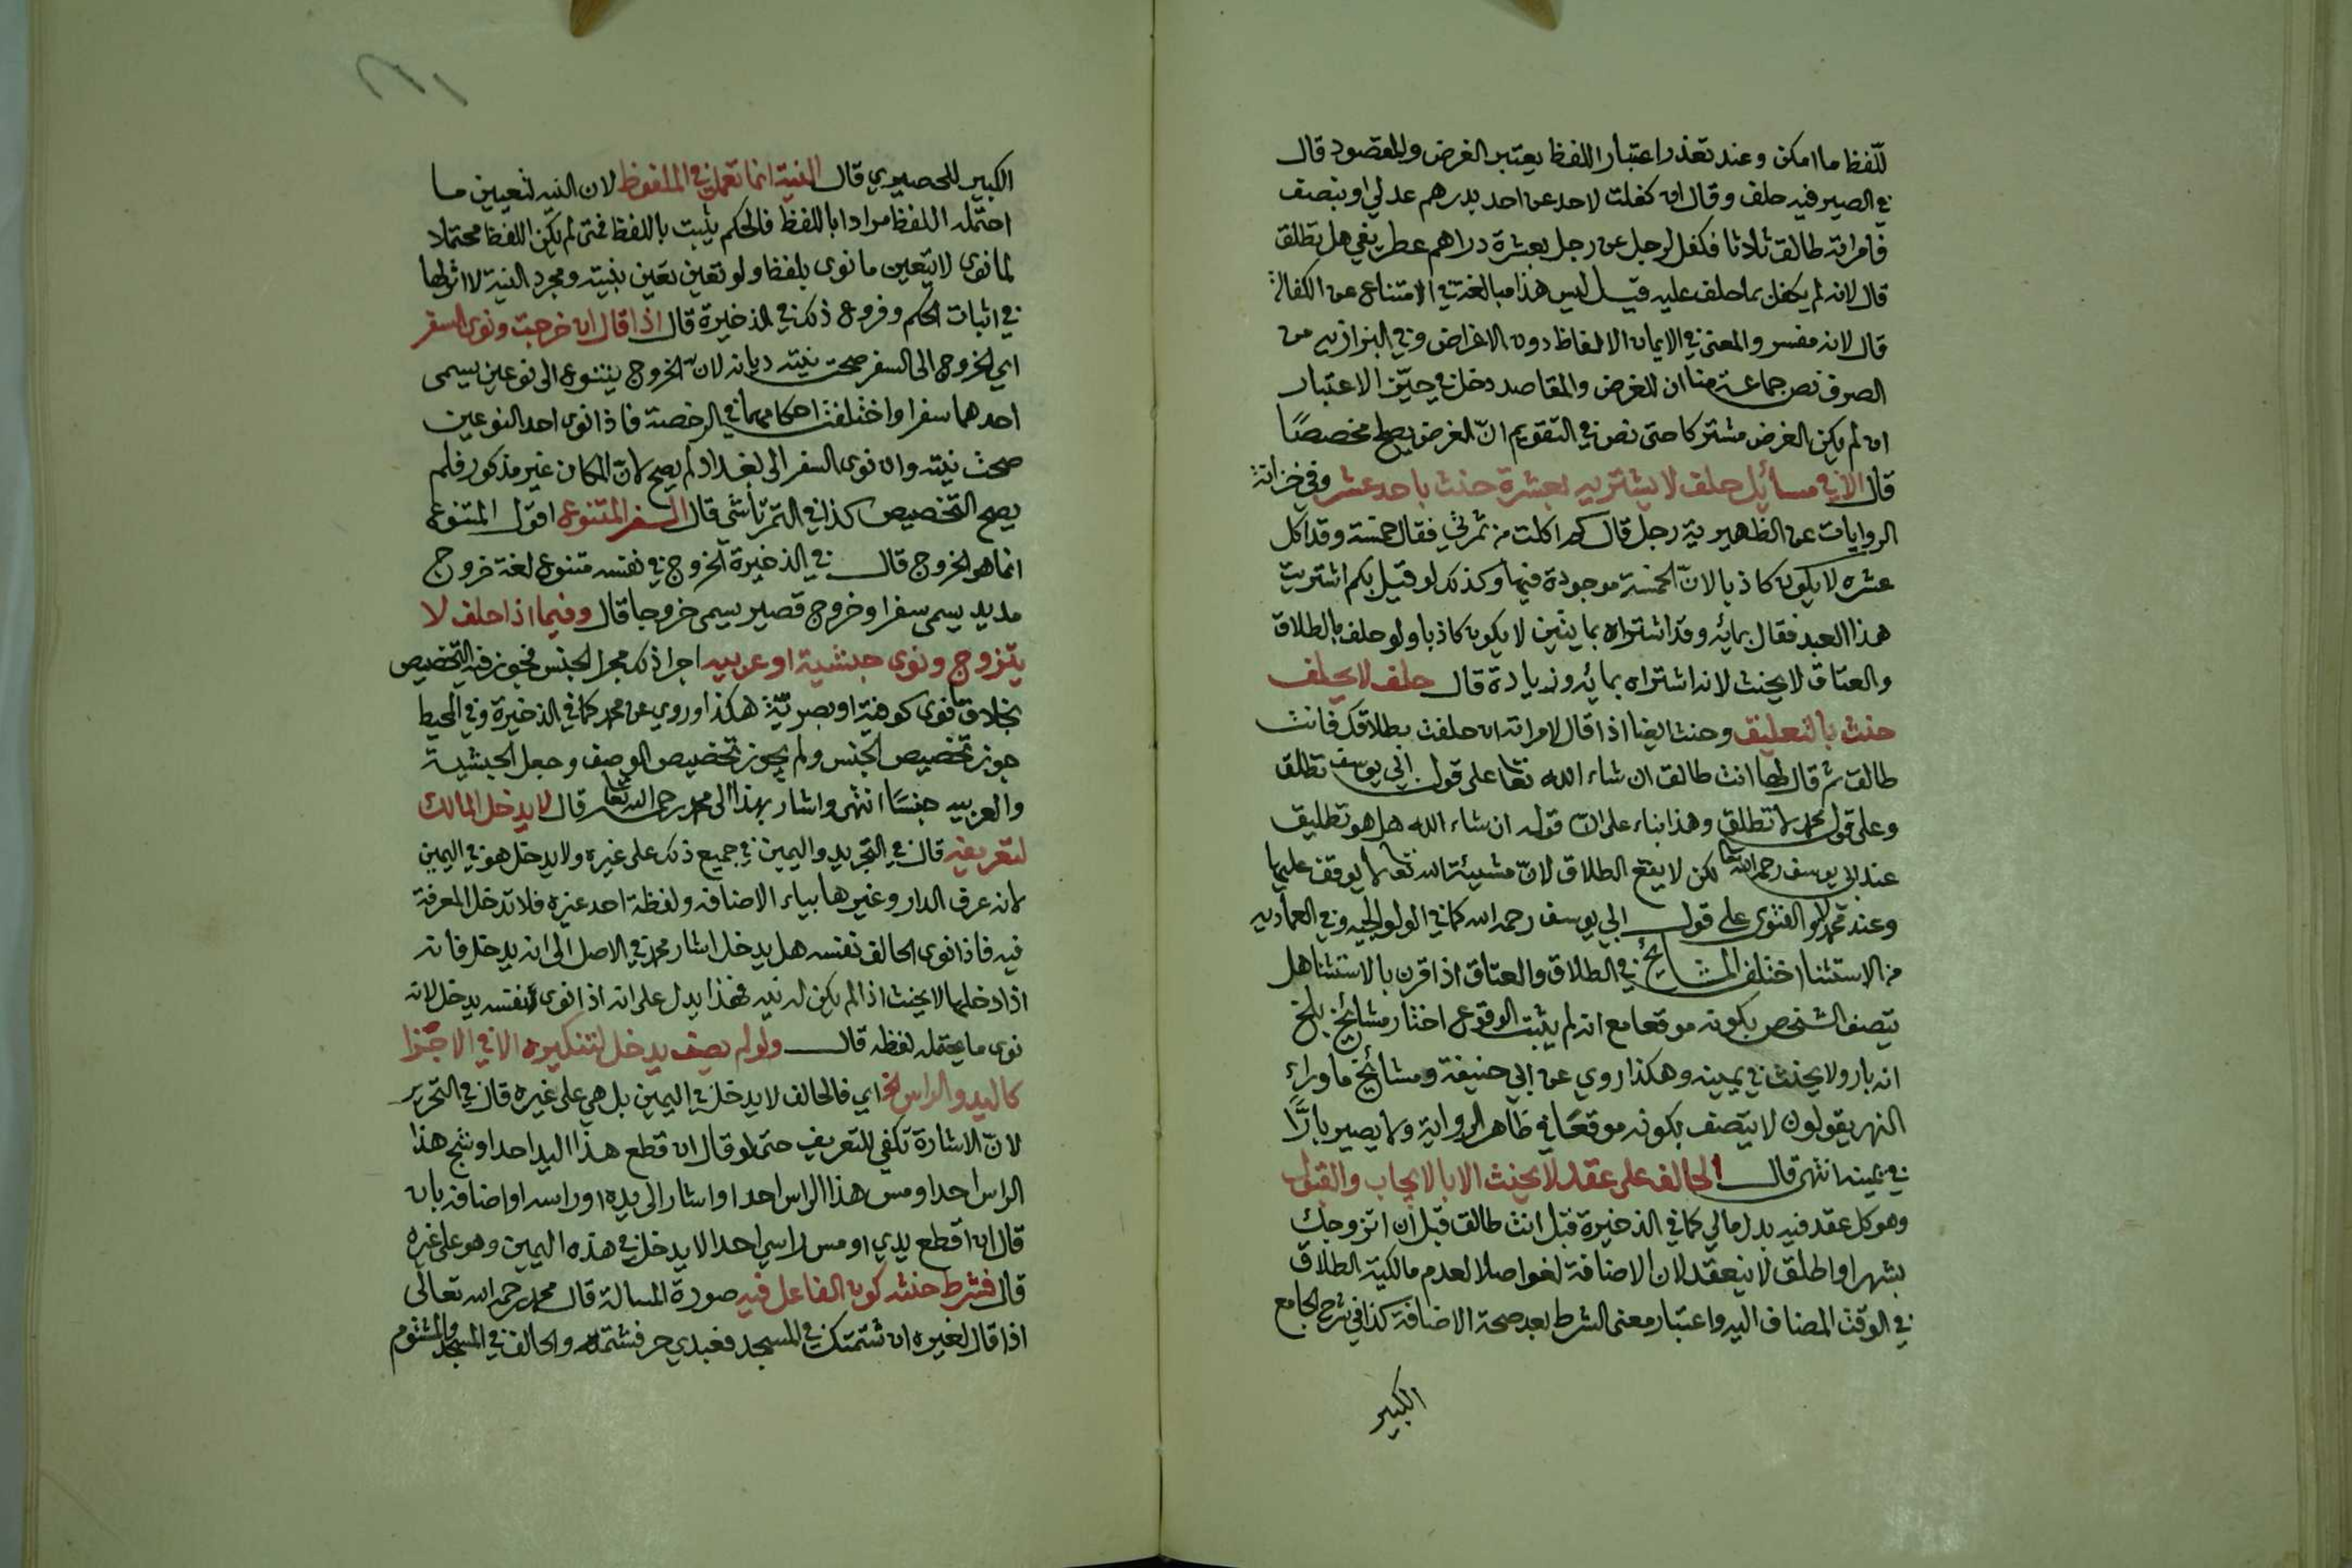 للّفظ ما امكن وعند تعذر اعتبار اللفظ يعتبر الغرض والمقصود قال
في الصير فيه حلف وقال ان كفلت لاحد عن احد بدرهم عدلي او بنصف
فامراته طالق ثلاثا فكفل لرجل عن رجل بعشرة دراهم عطريفي هل تطلق
قال لانه لم يكفل بما حلف عليه قيل ليس هذا مبالغة في الامتناع عن الكفالة
قال لانه مفسر والمعتبر في الايمان الالفاظ دون الاغراض وفي البزازيه من
الصرف نص جماعة منا ان للغرض والمقاصد دخل في حيّز الاعتبار
ان لم يكن الغرض مشتركا حتى نص في التقويم انّ الغرض يصلح مخصصًا
قال الا في مسائل حلف لا يشتريه بعشرة حنث باحد عشر وفي خزانة
الروايات عن الظهيرية رجل قال كم اكلت من تمرتي فقال خمسة وقد اكل
عشره لا يكون كاذبا لانّ الخمسة موجودة فيها وكذلك لو قيل بكم اشتريت
هذا العبد فقال بمائه وقد اشتراه بمايتين لا يكون كاذبا ولو حلف بالطلاق
والعتاق لا يحنث لانه اشتراه بمائه وزيادة قال حلف لا يحلف
حنث بالتعليق وحنث ايضا اذا قال لامراته ان حلفت بطلاقك فانت
طالق ثم قال لها انت طالق ان شاء الله تعا على قول ابي يوسف تطلق
وعلى قول محمد لا تطلق وهذا بناء على انّ قوله ان شاء الله هل هو تطليق
عند ابي يوسف رحمه الله تعا لكن لا يقع الطلاق لانّ مشيئة الله تعا لا يوقف عليها
وعند محمد لا والفتوى على قول ابي يوسف رحمه الله كما في الولوالجيه وفي العماديه
من الاستثنا اختلف المشايخ في الطلاق والعتاق اذا قرن بالاستثنا هل
يتصف الشخص بكونه موقعا مع انه لم يثبت الوقوع اختار مشائخ بلخ
انه بار ولا يحنث في يمينه وهكذا روي عن ابي حنيفة ومشائخ ما وراء
النهر يقولون لا يتصف بكونه موقعًا في ظاهر الرواية ولا يصير بارًّا
في يمينه انتهى قال الحالف على عقد لا يحنث الا بالايجاب والقبول
وهو كل عقد فيه بدل مالي كما في الذخيرة قبل انت طالق قبل ان اتزوجك
بشهر او اطلق لا ينعقد لان الاضافة لغو اصلا لعدم مالكية الطلاق
في الوقت المضاف اليه واعتبار معنى الشرط بعد صحة الاضافة كذا في شرح الجامع
الكبير
الكبير للحصيري قال النية انما تعمل في الملفوظ لان النيه لتعيين ما
احتمله اللفظ مرادا باللفظ فالحكم يثبت باللفظ فمتى لم يكن اللفظ محتملا
لما نوى لا يتعين ما نوى بلفظ ولو تعين تعين بنيته ومجرد النية لا اثر لها
في اثبات الحكم وفروع ذلك في الذخيرة قال اذا قال ان خرجت ونوى السفر
اي الخروج الى السفر صحت نيته ديانه لانّ الخروج يتنوع الى نوعين يسمى
احدهما سفرا واختلفت احكامهما في الرخصة فاذا نوى احد النوعين
صحت نيته وان نوى السفر الى بغداد لم يصح لانّ المكان غير مذكور فلم
يصح التخصيص كذا في التمرتاشي قال السفر المتنوع اقول المتنوع
انما هو الخروج قال في الذخيرة الخروج في نفسه متنوع لغة خروج
مديد يسمى سفرا وخروج قصير يسمى خروجا قال وفيما اذا حلف لا
يتزوج ونوى حبشية او عربيه اجرا ذلك مجرا الجنس فجوز فيه التخصيص
بخلاف ما نوى كوفية او بصريّة هكذا وروي عن محمد كما في الذخيرة وفي المحيط
جوز تخصيص الجنس ولم يجوز تخصيص الوصف وجعل الحبشية
والعربيه جنسًا انتهى واشار بهذا الى محمد رحمه الله تعا قال لا يدخل المالك
لتعريفه قال في التجريد واليمين في جميع ذلك على غيره ولا يدخل هو في اليمين
لانه عرف الدار وغيرها بياء الاضافه ولفظة احد غيره فلا تدخل المعرفة
فيه فاذا نوى الحالف نفسه هل يدخل اشار محمد في الاصل الى انه يدخل فانه
اذا دخلها لا يحنث اذا لم يكن له نيه فهذا يدل على انه اذا نوى نفسه يدخل لانه
نوى ما يحتمله لفظه قال ولو لم يضف يدخل لتنكيره الا في الاجزا
كاليد والراس الخ اي فالحالف لا يدخل في اليمين بل هي على غيره قال في التحرير
لانّ الاشارة تكفي للتعريف حتى لو قال ان قطع هذا اليد احد او شج هذا
الراس احد او مس هذا الراس احدا واشار الى يده او راسه او اضافه بان
قال ان اقطع يدي او مس راسي احد الا يدخل في هذه اليمين وهو على غيره
قال فشرط حنثه كون الفاعل فيه صورة المسالة قال محمد رحمه الله تعالى
اذا قال لغيره ان شتمتك في المسجد فعبدي حر فشتمه والحالف في المسجد والمشتوم